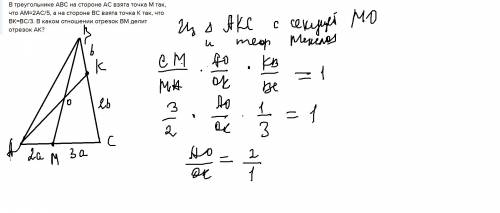 В треугольнике ABC на стороне АС взята точка М так,
что АМ=2АС/5, а на стороне ВС взята точка К так, что
ВК=ВС/3. В каком отношении отрезок ВМ делит
отрезок АК?
B
b
K
2b
O
A
2a
M
3a
C
Из Δ АКС с секущей МО
и теор Менелая
CM/MA · AO/OK · KB/BC = 1
3/2 · AO/OK · 1/3 = 1
AO/OK = 2/1